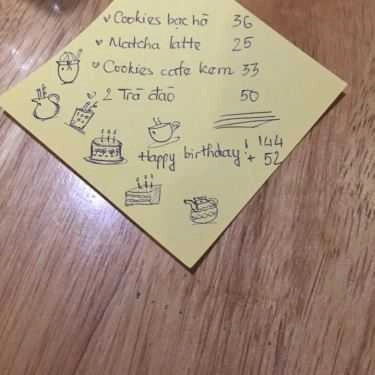 Cookies bạc hà 36
Matcha latte 25
Cookies cafe kem 33
2 Trà đào 50
144
Happy birthday! + 52